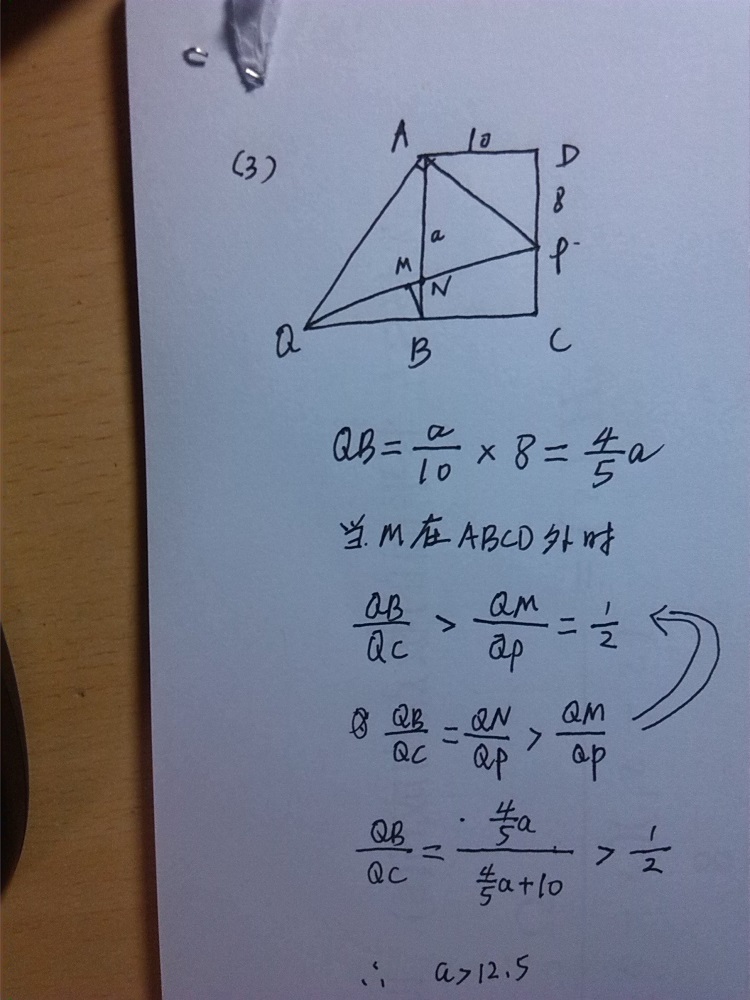 (3)
A 10 D
8
a
P
M
N
Q
B
C
QB = a/10 × 8 = 4/5 a
当 M 在 ABCD 外时
QB/QC > QM/QP = 1/2
QB/QC = QN/QP > QM/QP
QB/QC = 4/5 a / (4/5 a + 10) > 1/2
∴ a > 12.5